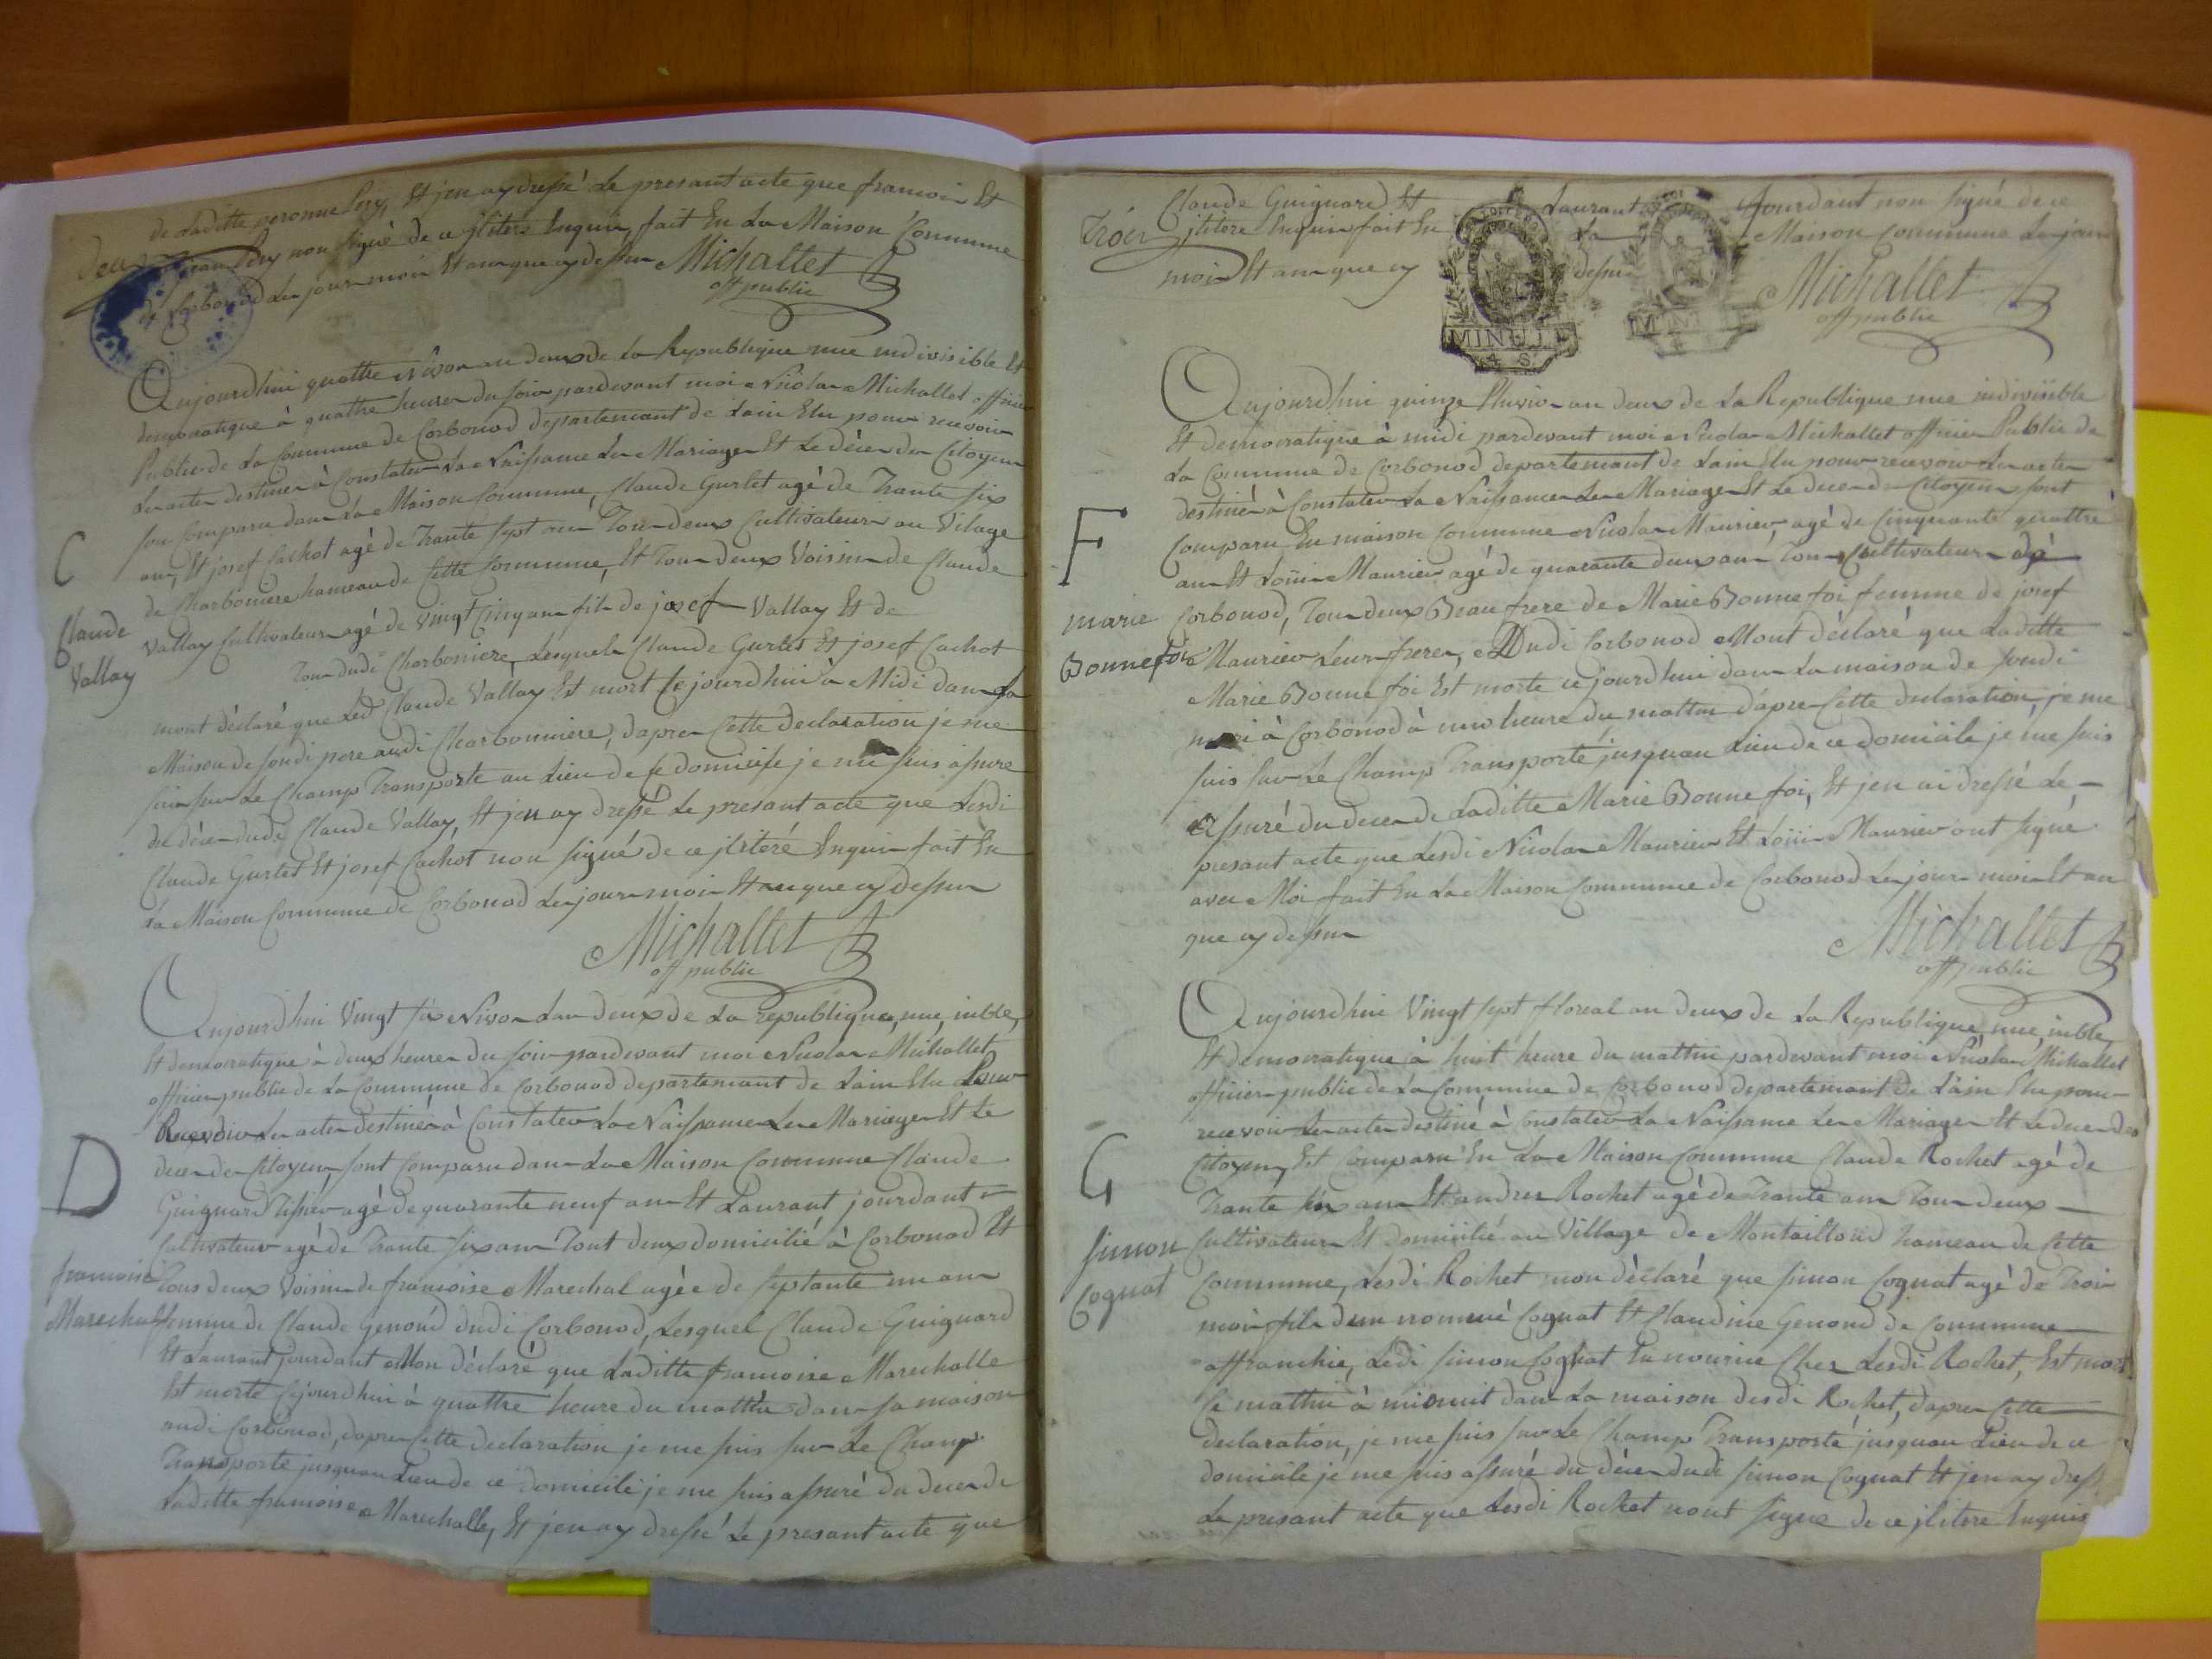 deux
de laditte peronne Pery, Et jen ay dressé Le presant acte que francois Et
Jean Pery non signé de ce jlitere Enquis, fait En La Maison Commune
de Corbonod Les jour mois Et an que cy dessus Michallet
off public
Aujourdhui quattre Nivos an deux de La Republique une indivisible Et
democratique à quattre heures du soir pardevant moi Nicolas Michallet officier
Public de La Commune de Corbonod departemant de Lain Elu pour recevoir
Les actes destinés à Constater La Naissance Les Mariages Et Le déces des Citoyens
son Comparu dans La Maison Commune, Claude Gurlet agé de Trante six
ans, Et josef Cachot agé de Trante sept ans Tous deux Cultivateurs au Vilage
de Charboniere hameau de Cette Commune, Et Tous deux Voisins de Claude
C
Claude
Vallay
Vallay Cultivateur agé de Vingt Cinq ans fils de josef Vallay Et de
Tous dudi Charboniere, Lesquels Claude Gurlet Et josef Cachot
mont dèclaré que Led Claude Vallay Est mort Cejourdhui à Midi dans La
Maison de sondi pere audi Charbonniere, dapres Cette declaration je me
suis sur Le Champ Transporte au Lieu de Ce domicile je me suis assure
du déces dudi Claude Vallay, Et jen ay dressé Le presant acte que Lesdi
Claude Gurlet Et josef Cachot non signé de ce jlitéré Enquis fait En
La Maison Commune de Corbonod Les jour mois Et an que cy dessus
Michallet
off public
Aujourdhui Vingt six Nivos Lan deux de La republique, une, inible,
Et democratique à deux heures du soir pardevant moi Nicolas Michallet
officier public de La Commune de Corbonod departemant de Lain Elu Pour
Recevoir Les actes destinés à Constater La Naissance Les Mariages Et Le
deces des Citoyens, sont Comparu dans La Maison Commune Claude
D
Guignard Tissier agé de quarante neuf ans Et Laurant jourdant
Cultivateur agé de Trante six ans Tout deux domicilié à Corbonod Et
francoise
Marechal
Tous deux Voisins de francoise Marechal agèe de septante un ans
femme de Claude genoud dudi Corbonod, Lesquel Claude Guignard
Et Laurant Jourdant Mon dèclaré que Laditte francoise Marechalle
Est morte Cejourdhui à quattre heure du mattin dans sa maison
audi Corbonod, dapres Cette declaration je me suis sur Le Champ
Transporté jusquau Lieu de ce domicilé je me suis assuré du deces de
Laditte francoise Marechalle, Et jen ay dressé Le presant acte que
Trois
Claude Guignard Et Laurant Jourdant non signé de ce
jlitere Enquis fait En La Maison Commune Les jour
mois Et an que cy dessus
MINUTE
4 S.
Michallet
off public
Aujourdhui quinze Pluvios an deux de La Republique une indivisible
Et democratique à midi pardevant moi Nicolas Michallet officier Public de
La Commune de Corbonod departemant de Lain Elu pour recevoir Les actes
destinés à Constater La Naissances Les Mariages Et Le deces des Citoyens sont
F
Comparu En maison Commune Nicolas Maurier agé de Cinquante quattre
ans Et Loüis Maurier agé de quarante deux ans Tous Cultivateurs à
marie
Bonnefoi
Corbonod, Tous deux Beau frere de Marie Bonne foi femme de josef
Maurier Leurs freres, Dudi Corbonod Mont dèclaré que Laditte
Marie Bonne foi Est morte ce jourdhui dans La maison de sondi
mari à Corbonod à une heure du mattin dápres Cette declaration, je me
suis sur Le Champ Transporté jusquau Lieu de ce domicile je me suis
assuré du deces de Laditte Marie Bonne foi, Et jen ai dressé Le
presant acte que Lesdi Nicolas Maurier Et Loüis Maurier ont signé
avec Moi fait En La Maison Commune de Corbonod Les jour mois Et an
que cy dessus
Michallet
off public
Aujourdhui Vingt sept floreal an deux de La Republique, une, inible,
Et democratique à huit heure du mattin pardevant moi Nicolas Michallet
officier public de La Commune de Corbonod departemant de Lain Elu pour
recevoir Les actes destiné à Constater La Naissance Les Mariages Et Le deces des
G
Citoyens, Est Comparu En La Maison Commune Claude Rochet agé de
Trante six ans Et andres Rochet agé de Trante ans Tous deux
Simon
Cognat
Cultivateurs Et domicilié au Village de Montailloud hameau de Cette
Commune, Lesdi Rochet mon dèclaré que Simon Cognat agé de Trois
mois fils dun nommé Cognat Et Claudine Genoud de Commune
affranchie, Ledi Simon Cognat En nourrice Ches Lesdi Rochet, Est mort
Ce mattin à minuit dans La maison desdi Rochet, dapres Cette
declaration, je me suis sur Le Champ Transporté jusquau Lieu de ce
domicile je me suis assuré du déces dudi Simon Cognat Et jen ay dress
Le presant acte que Lesdi Rochet nont signe de ce jlitere Enquis